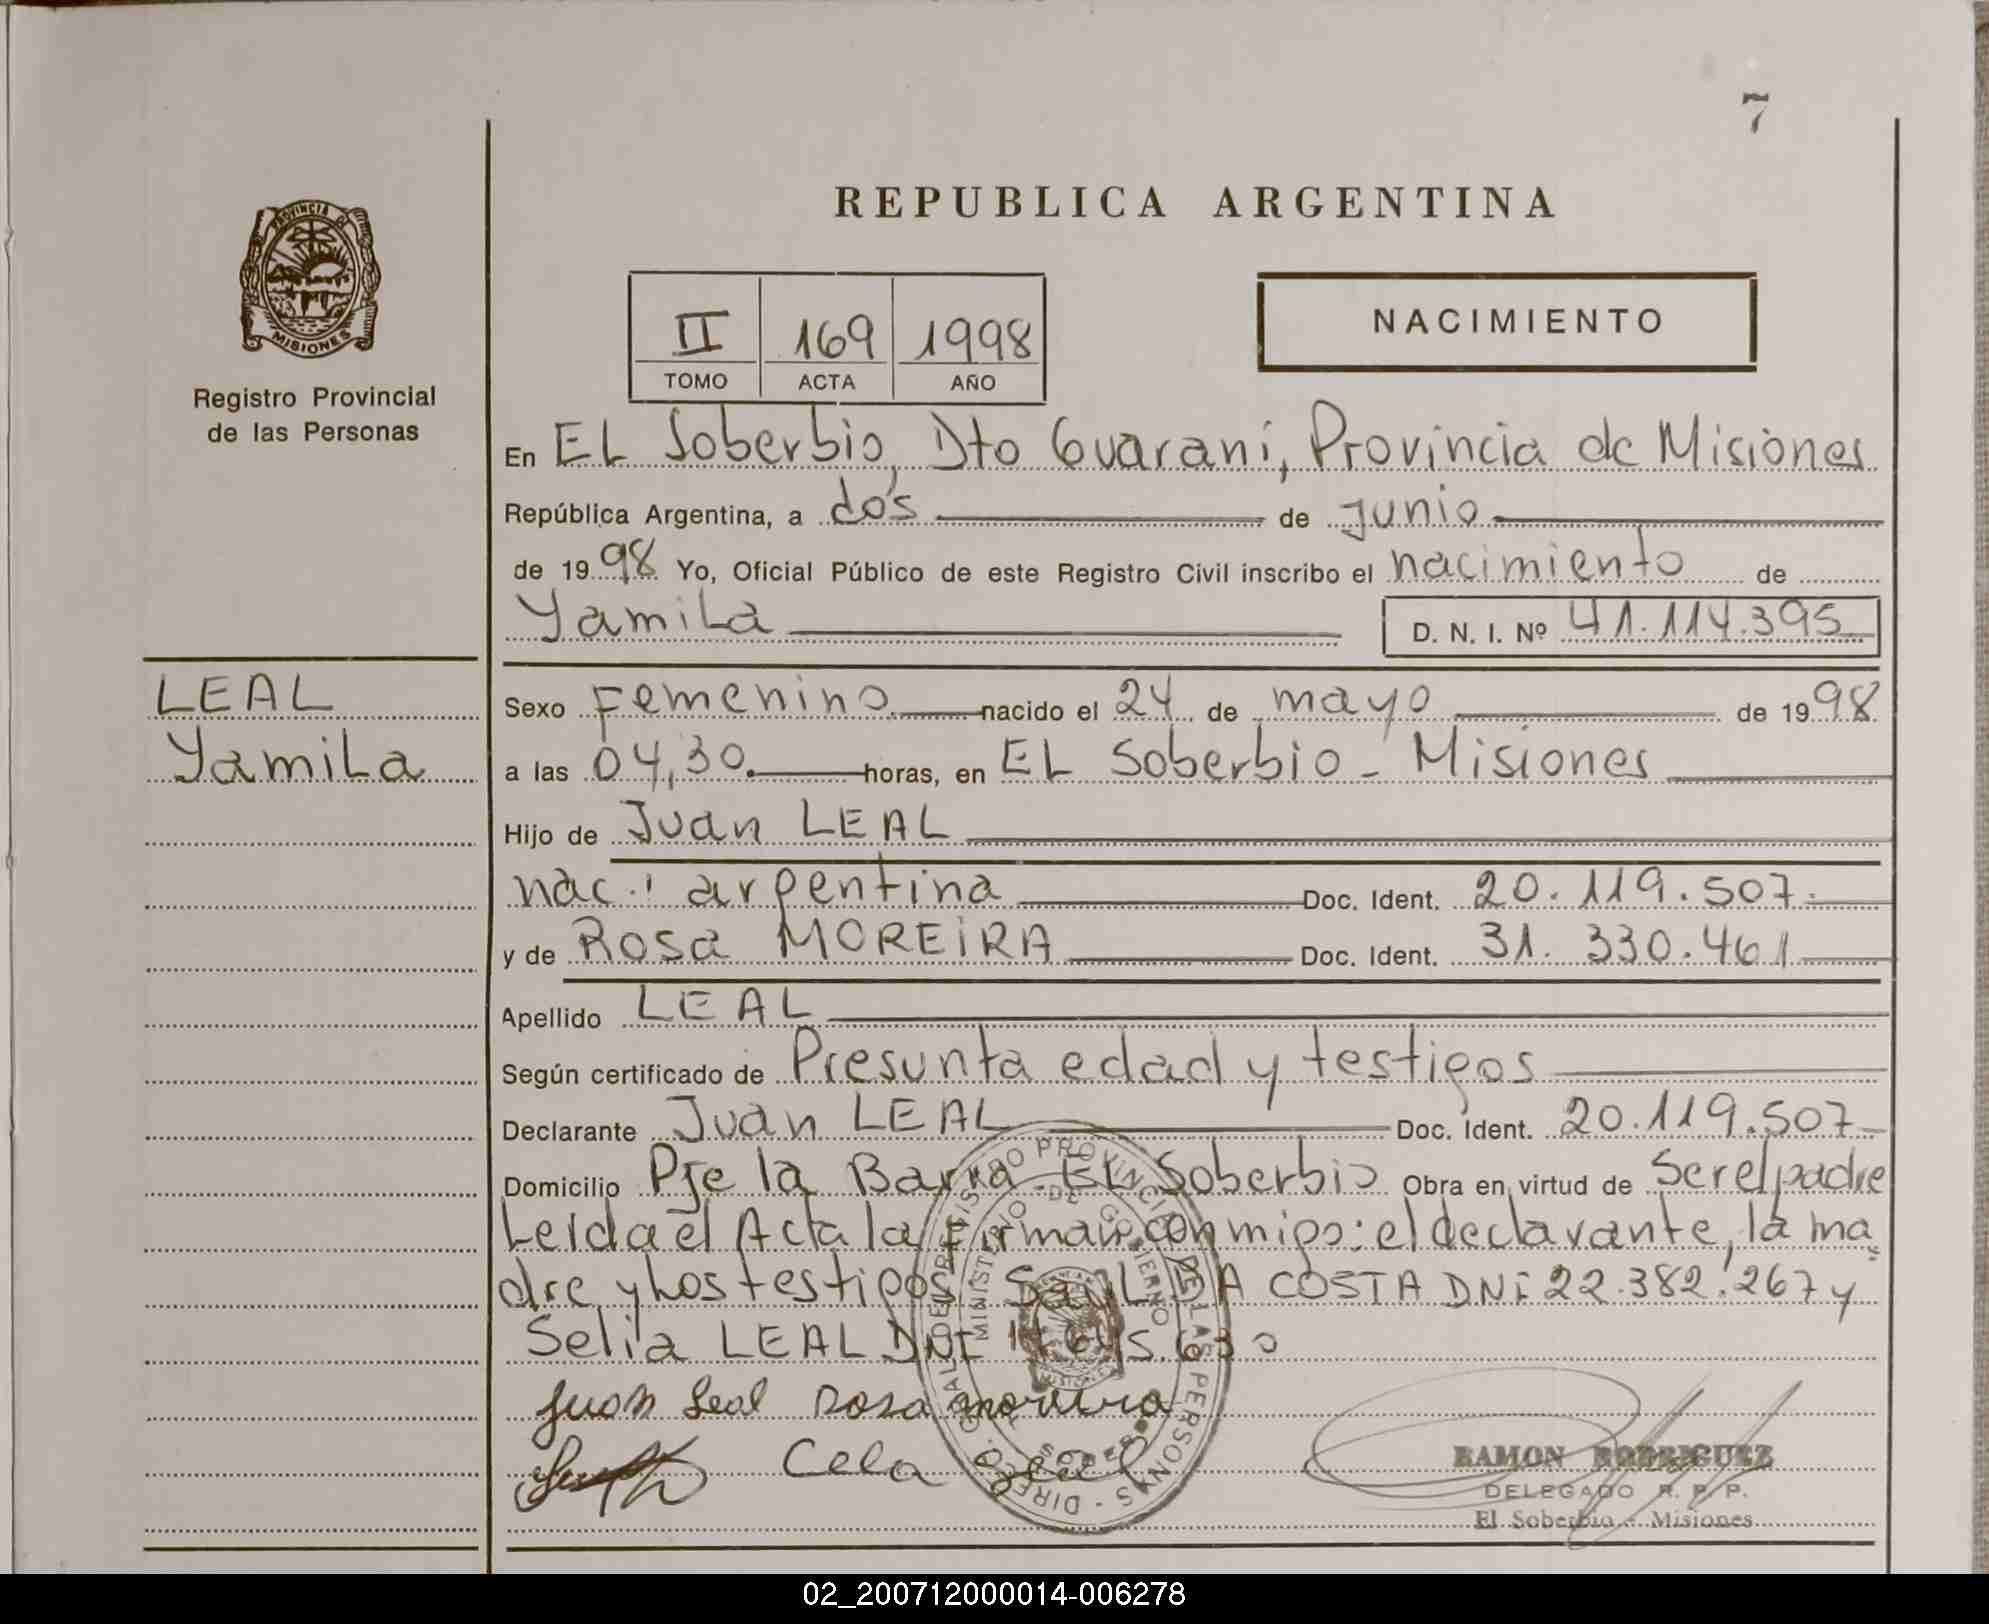 7
REPUBLICA ARGENTINA
PROVINCIA DE
MISIONES
Registro Provincial
de las Personas
NACIMIENTO
II 169 1998
TOMO ACTA AÑO
En EL Soberbio, Dto Guaraní, Provincia de Misiones
República Argentina, a dos de junio
de 1998 Yo, Oficial Público de este Registro Civil inscribo el nacimiento de
Yamila
D. N. I. Nº 41.114.395
LEAL
Yamila
Sexo Femenino nacido el 24 de mayo de 1998
a las 04,30 horas, en EL Soberbio - Misiones
Hijo de Juan LEAL
nac.: argentina Doc. Ident. 20.119.507.
y de Rosa MOREIRA Doc. Ident. 31.330.461
Apellido LEAL
Según certificado de Presunta edad y testigos
Declarante Juan LEAL Doc. Ident. 20.119.507
Domicilio Pje la Barra EL Soberbio Obra en virtud de Ser el padre
Leida el Acta la firman conmigo: el declarante, la ma
dre y los testigos Saul DA COSTA DNI 22.382.267 y
Selia LEAL DNI
Juan Leal Rosa Moreira
Cela Leal
RAMON RODRIGUEZ
DELEGADO R. P. P.
El Soberbio - Misiones
02_200712000014-006278